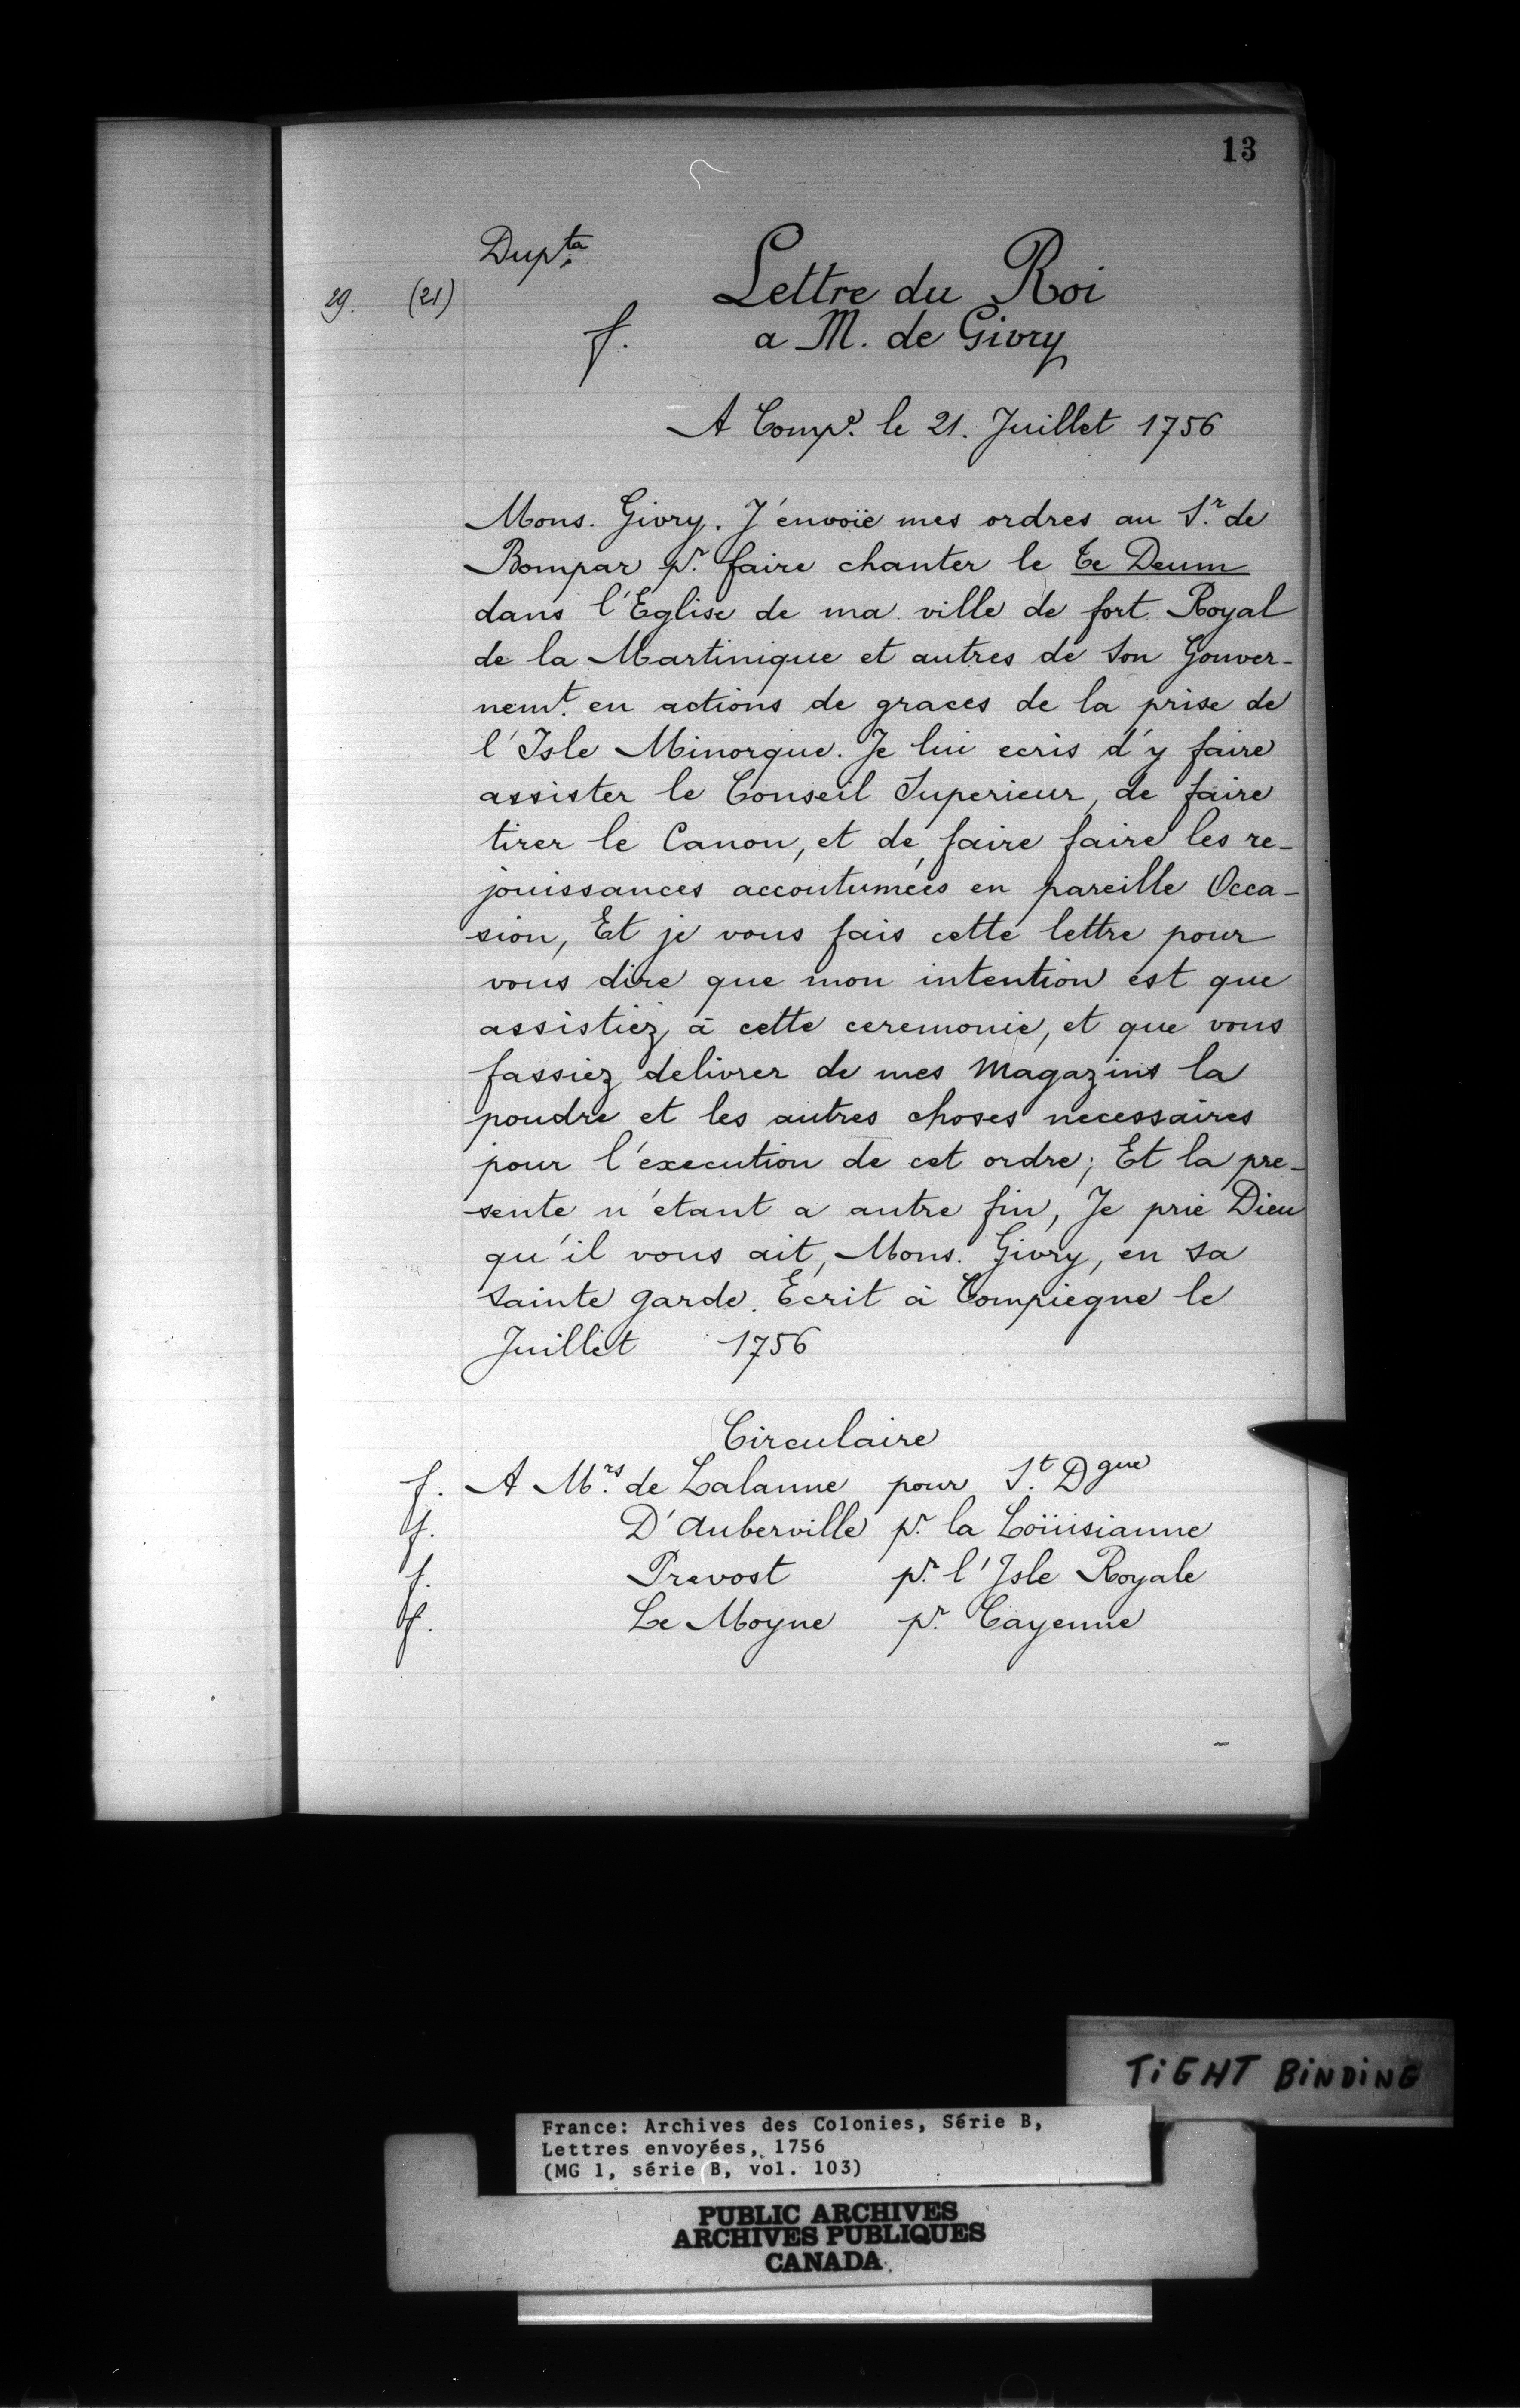 13
Dupta
29. (21) Lettre du Roi
f. a M. de Givry
A Compe. le 21. Juillet 1756
Mons. Givry. J'envoïe mes ordres au Sr. de
Bompar pr. faire chanter le Te Deum
dans l'Eglise de ma ville de fort Royal
de la Martinique et autres de son Gouver-
nemt. en actions de graces de la prise de
l'Isle Minorque. Je lui ecris d'y faire
assister le Conseil Superieur, de faire
tirer le Canon, et de faire faire les re-
jouissances accoutumées en pareille Occa-
sion, Et je vous fais cette lettre pour
vous dire que mon intention est que
assistiez à cette ceremonie, et que vous
fassiez delivrer de mes Magazins la
poudre et les autres choses necessaires
pour l'execution de cet ordre; Et la pre-
sente n'étant a autre fin, Je prie Dieu
qu'il vous ait, Mons. Givry, en sa
sainte garde. Ecrit à Compiegne le
Juillet 1756
Circulaire
f. A Mrs. de Lalanne pour St. Dgue
f. D'Auberville pr. la Loüisianne
f. Prevost pr. l'Isle Royale
f. Le Moyne pr. Cayenne
TiGHT BiNDiNG
France: Archives des Colonies, Série B,
Lettres envoyées, 1756
(MG 1, série B, vol. 103)
PUBLIC ARCHIVES
ARCHIVES PUBLIQUES
CANADA